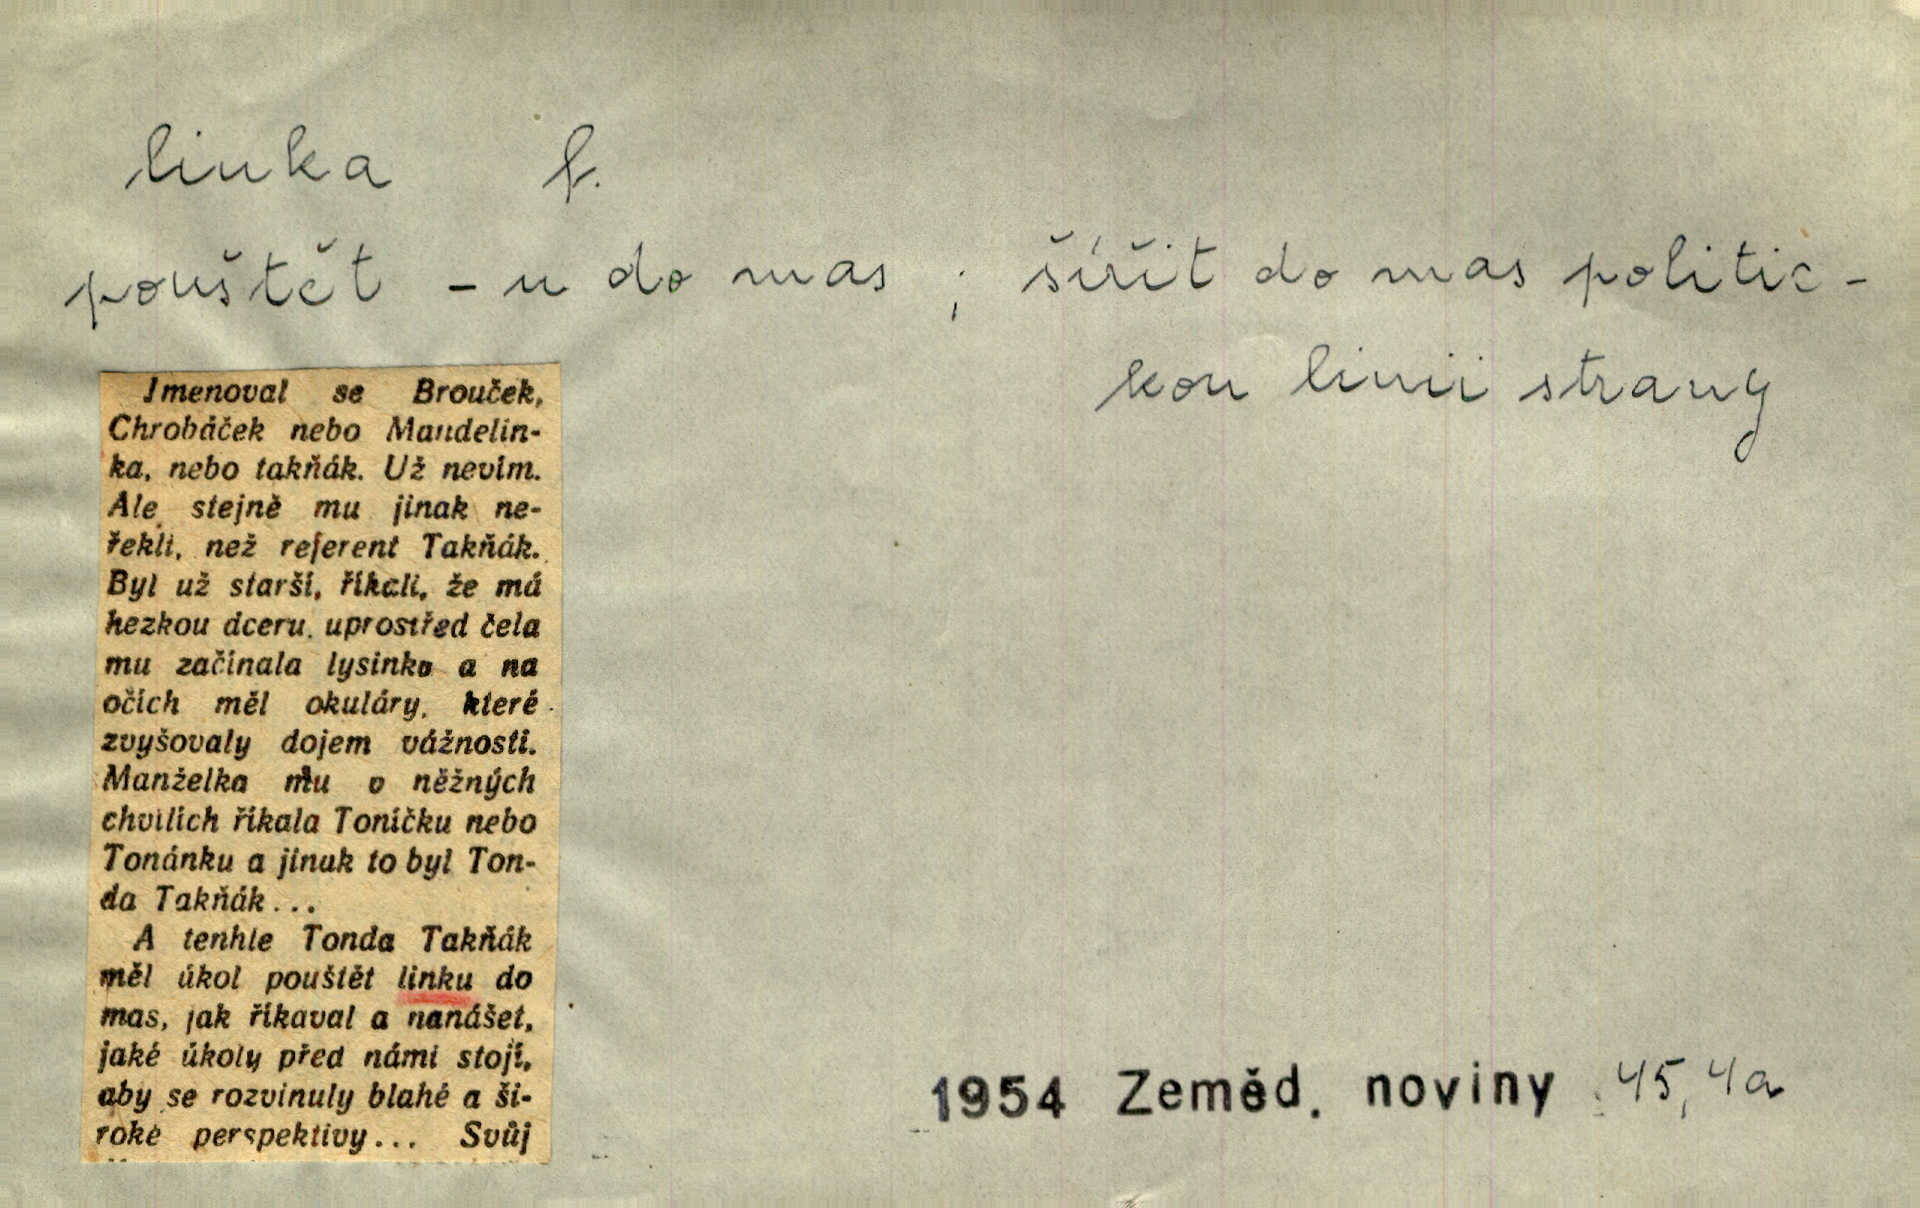 linka f.
pouštět – u do mas ; šířit do mas politic-
kou linii strany
Jmenoval se Brouček,
Chrobáček nebo Mandelin-
ka, nebo takňák. Už nevím.
Ale stejně mu jinak ne-
řekli, než referent Takňák.
Byl už starší, říkali, že má
hezkou dceru, uprostřed čela
mu začínala lysinka a na
očích měl okuláry, které
zvyšovaly dojem vážnosti.
Manželka mu v něžných
chvílích říkala Toníčku nebo
Tonánku a jinak to byl Ton-
da Takňák...
A tenhle Tonda Takňák
měl úkol pouštět linku do
mas, jak říkaval a nanášet,
jaké úkoly před námi stojí,
aby se rozvinuly blahé a ši-
roké perspektivy... Svůj
1954 Zeměd. noviny 45, 4a